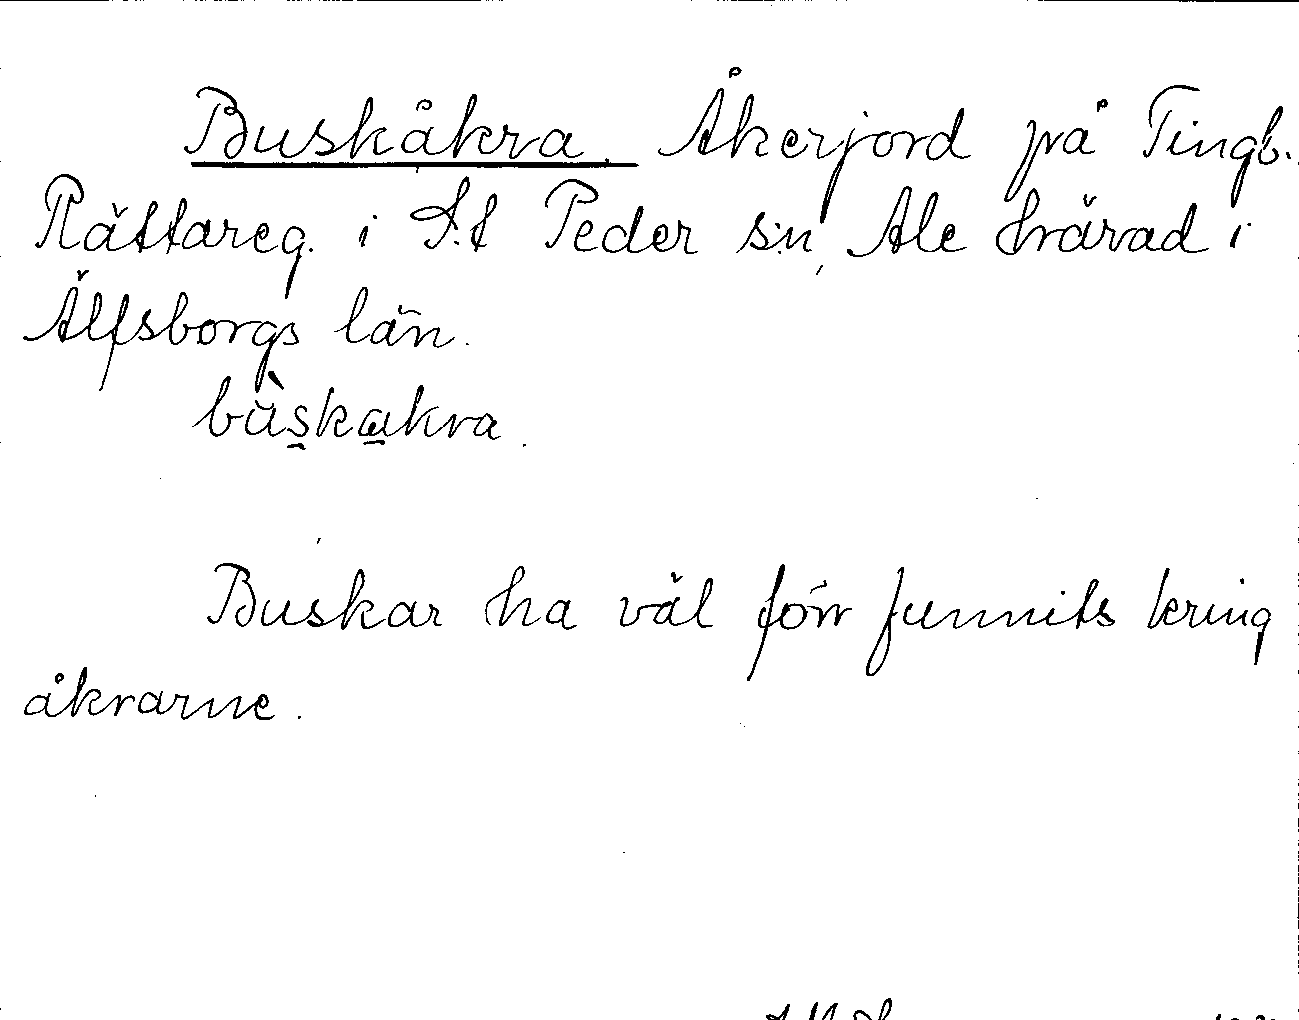 Buskåkra. Åkerjord på Tingb.
Rättareg. i S:t Peder s:n, Ale härad i
Älfsborgs län.
bùskakra.
Buskar ha väl förr funnits kring
åkrarne.